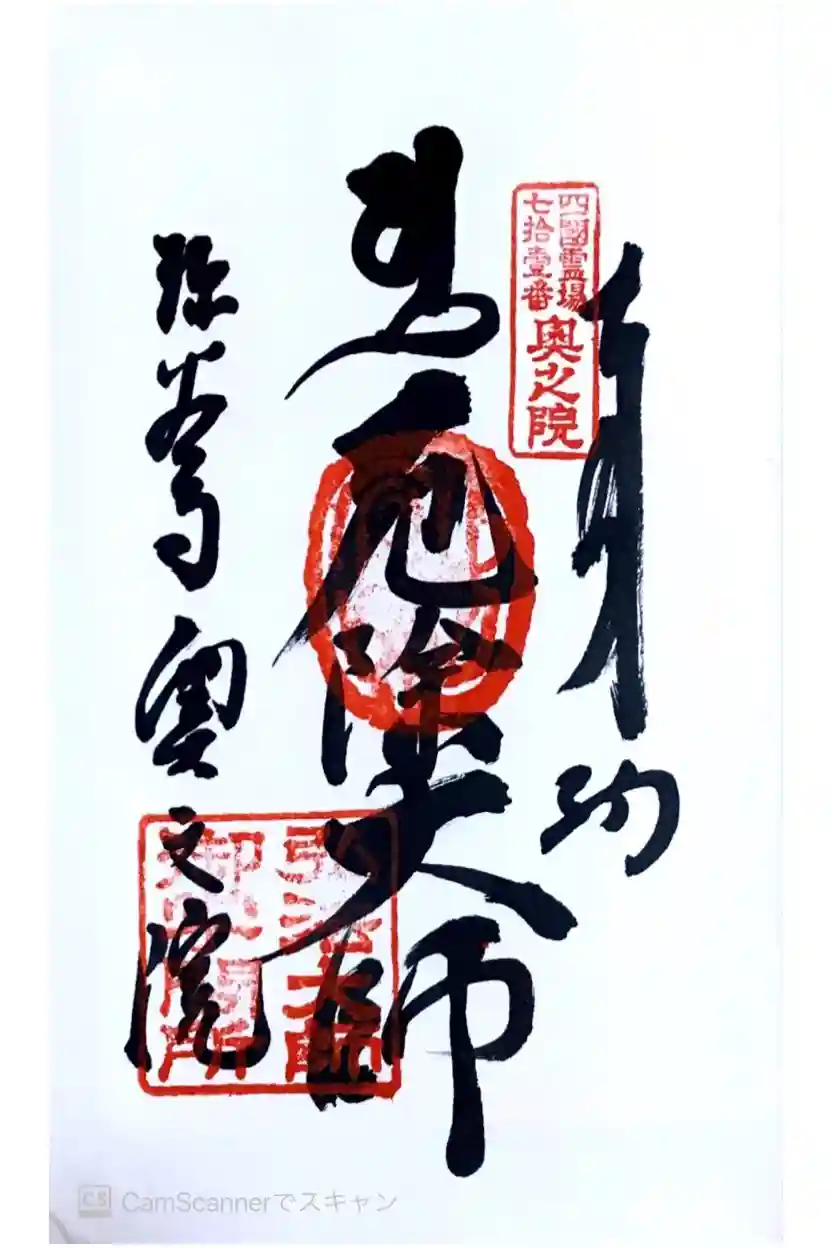 奉納
四國霊場
七拾壹番
奥之院
厄除大師
弥谷寺 奥之院
弘法大師
御
所
CS CamScannerでスキャン